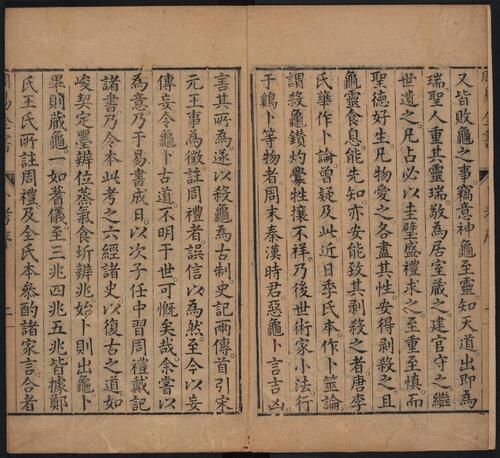 又皆敗龜之事竊意神龜至靈知天道出即為
瑞聖人重其靈瑞敬為居室藏之建官守之繼
世遺之凡占必以圭璧盛禮求之至重至慎而
聖德好生凡物愛之各盡其性安得剝殺之且
龜靈食息能先知亦安能致其剝殺之者唐李
氏華作卜論曾疑及此近日季氏本作卜筮論
謂殺龜鑽灼釁牲攘不祥乃後世術家小法行
于鷄卜等物者周末秦漢時君惡龜卜言吉凶
言其所為遂以殺龜為古制史記兩傳首引宋
元王事為徵註周禮者誤信以為然至今以妄
傳妄令龜卜古道不明于世可慨矣哉余嘗以
為意乃于易書成日以次子任中習周禮戴記
諸書乃令本此考之六經諸史以復古之道如
峻契定墨辨位蒸氣食坼辨兆始卜則出龜卜
畢則藏龜一如蓍儀至三兆四兆五兆皆據鄭
氏王氏所註周禮及全氏本參酌諸家言合者